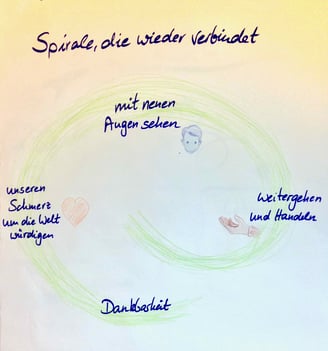 Spirale, die wieder verbindet
mit neuen
Augen sehen
unseren
Schmerz
um die Welt
würdigen
Weitergehen
und Handeln
Dankbarkeit